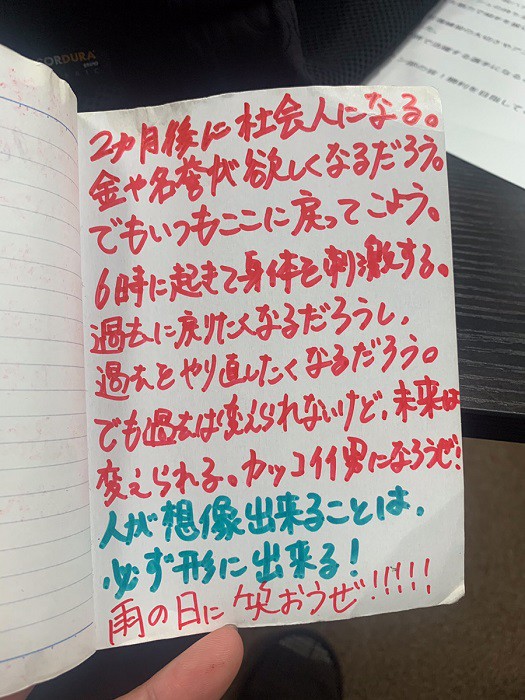 CORDURA
2ヶ月後に社会人になる。
金や名誉が欲しくなるだろう。
でもいつもここに戻ってこよう。
6時に起きて身体を刺激する。
過去に戻りたくなるだろうし、
過去をやり直したくなるだろう。
でも過去は変えられないけど、未来は
変えられる。カッコイイ男になろうぜ!
人が想像出来ることは、
必ず形に出来る!
雨の日に笑おうぜ!!!!!